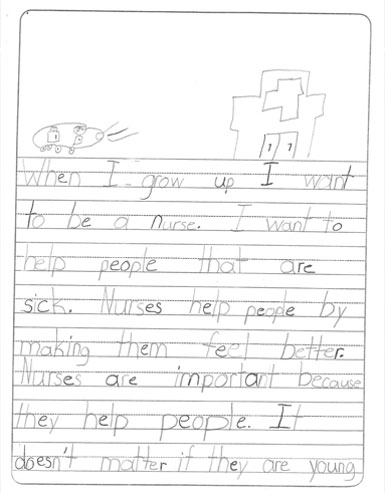 When I grow up I want
to be a nurse. I want to
help people that are
sick. Nurses help people by
making them feel better.
Nurses are important because
they help people. It
doesn't matter if they are young